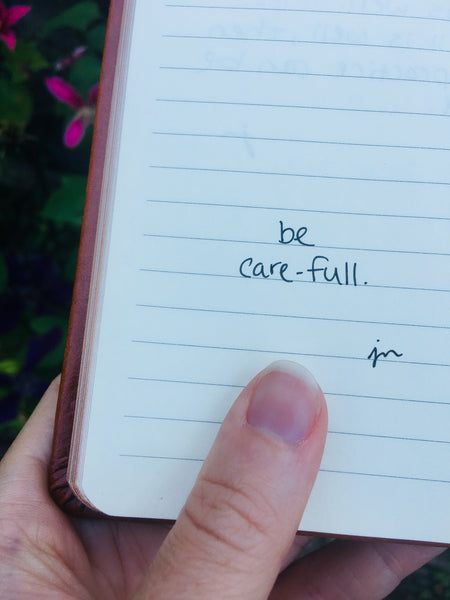 be
care-full.
jn